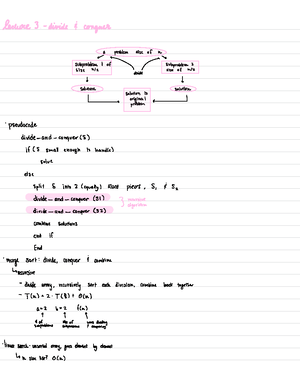 Lecture 3 - divide & conquer
a problem size of n
subproblem 1 of size n/2
subproblem 2 size of n/2
divide
solution
solution
solution to original problem
· pseudocode
divide-and-conquer (S)
if (S small enough to handle)
solve
else
split S into 2 (equally) sized pieces, S₁ & S₂
divide-and-conquer (S1)
divide-and-conquer (S2)
recursive algorithm
combine solutions
end if
End
· merge sort: divide, conquer & combine
↳ recursive
- divide array, recursively sort each division, combine back together
a=2 b=2 f(n)
# of subproblems
· linear search: unsorted array, goes element by element